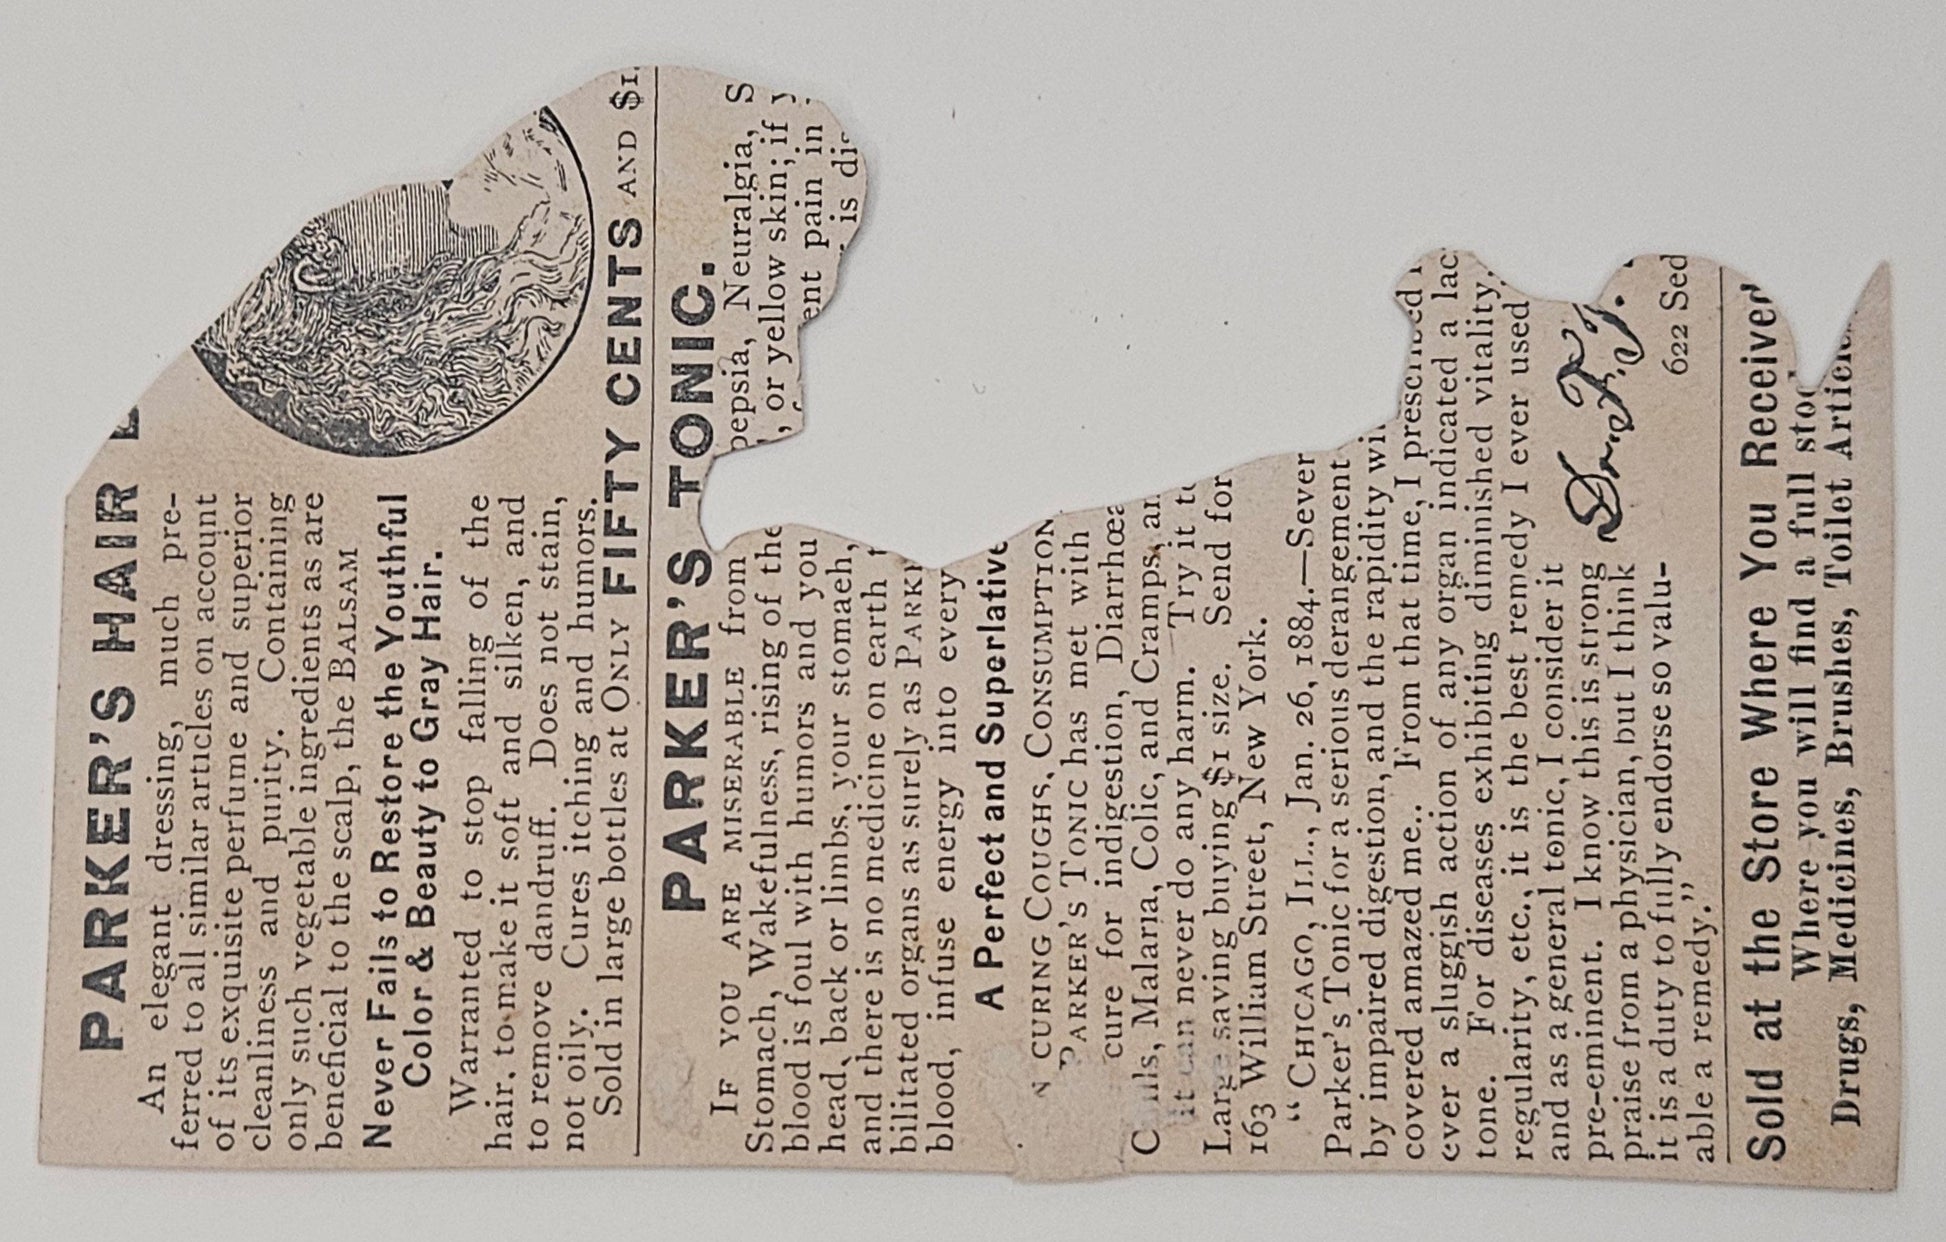 PARKER'S HAIR
An elegant dressing, much pre-
ferred to all similar articles on account
of its exquisite perfume and superior
cleanliness and purity. Containing
only such vegetable ingredients as are
beneficial to the scalp, the BALSAM
Never Fails to Restore the Youthful
Color & Beauty to Gray Hair.
Warranted to stop falling of the
hair, to make it soft and silken, and
to remove dandruff. Does not stain,
not oily. Cures itching and humors.
Sold in large bottles at ONLY FIFTY CENTS AND $1.
PARKER'S TONIC.
IF YOU ARE MISERABLE from pepsia, Neuralgia, S
Stomach, Wakefulness, rising of the , or yellow skin; if y
blood is foul with humors and you ent pain in
head, back or limbs, your stomaeh, is dis
and there is no medicine on earth t
bilitated organs as surely as PARK
blood, infuse energy into every
A Perfect and Superlative
N CURING COUGHS, CONSUMPTION
PARKER'S TONIC has met with
cure for indigestion, Diarrhœa
C lls, Malaria, Colic, and Cramps, an
it can never do any harm. Try it to
Large saving buying $1 size. Send for
163 William Street, New York.
"CHICAGO, ILL., Jan. 26, 1884.—Sever
Parker's Tonic for a serious derangement
by impaired digestion, and the rapidity wi
covered amazed me.. From that time, I prescribed
ever a sluggish action of any organ indicated a lac
tone. For diseases exhibiting diminished vitality,
regularity, etc., it is the best remedy I ever used
and as a general tonic, I consider it
pre-eminent. I know this is strong
praise from a physician, but I think
it is a duty to fully endorse so valu-
able a remedy."
622 Sed
Sold at the Store Where You Received
Where you will find a full stoc
Drugs, Medicines, Brushes, Toilet Article